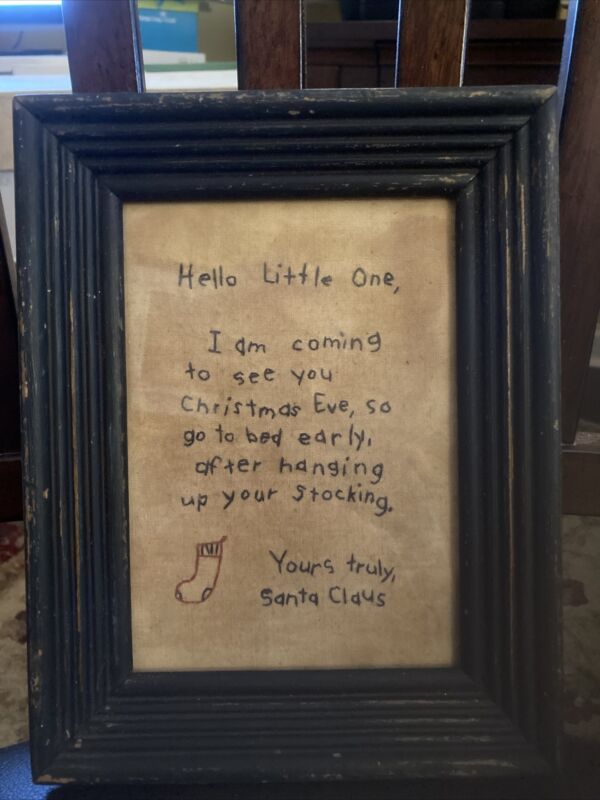 Hello Little One,
I am coming
to see you
Christmas Eve, so
go to bed early,
after hanging
up your Stocking.
Yours truly,
Santa Claus